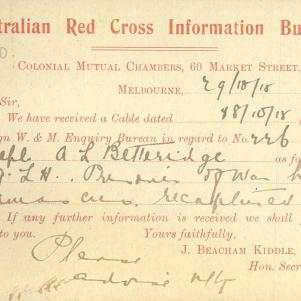 tralian Red Cross Information Bu
D.
Colonial Mutual Chambers, 60 Market Street,
Melbourne, 29/10/18
Sir,
We have received a Cable dated 18/10/18
gn W. & M. Enquiry Bureau in regard to No. 226
A L Betteridge as fo
L.H. Prisoner of War
recaptured
If any further information is received we shall
to you. Yours faithfully,
J. BEACHAM KIDDLE,
Hon. Secr
Please
advise